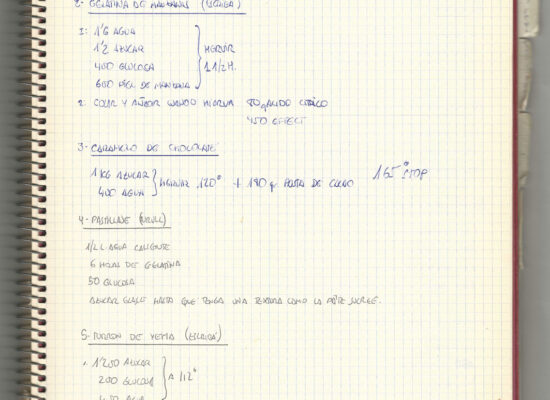 2- GELATINA DE MANZANAS (ESCRIBÀ)
1: 1'6 AGUA
1'2 AZUCAR
400 GLUCOSA
600 PIEL DE MANZANA
HERVIR
1 1/2 H.
2: COLAR Y AÑADIR CUANDO HIERVA 80 g ACIDO CITRICO
450 EFFECT
3- CARAMELO DE CHOCOLATE
1 KG AZUCAR
400 AGUA
HERVIR 120° + 180 g PASTA DE CACAO 165° STOP
4- PASTILLAJE
1/2 L AGUA CALIENTE
6 HOJAS DE GELATINA
50 GLUCOSA
AZUCAR GLACE HASTA QUE TENGA UNA TEXTURA COMO LA PÂTE SUCREE.
5- TURRON DE YEMA (ESCRIBÀ)
1'250 AZUCAR
200 GLUCOSA
450 AGUA
A 112°